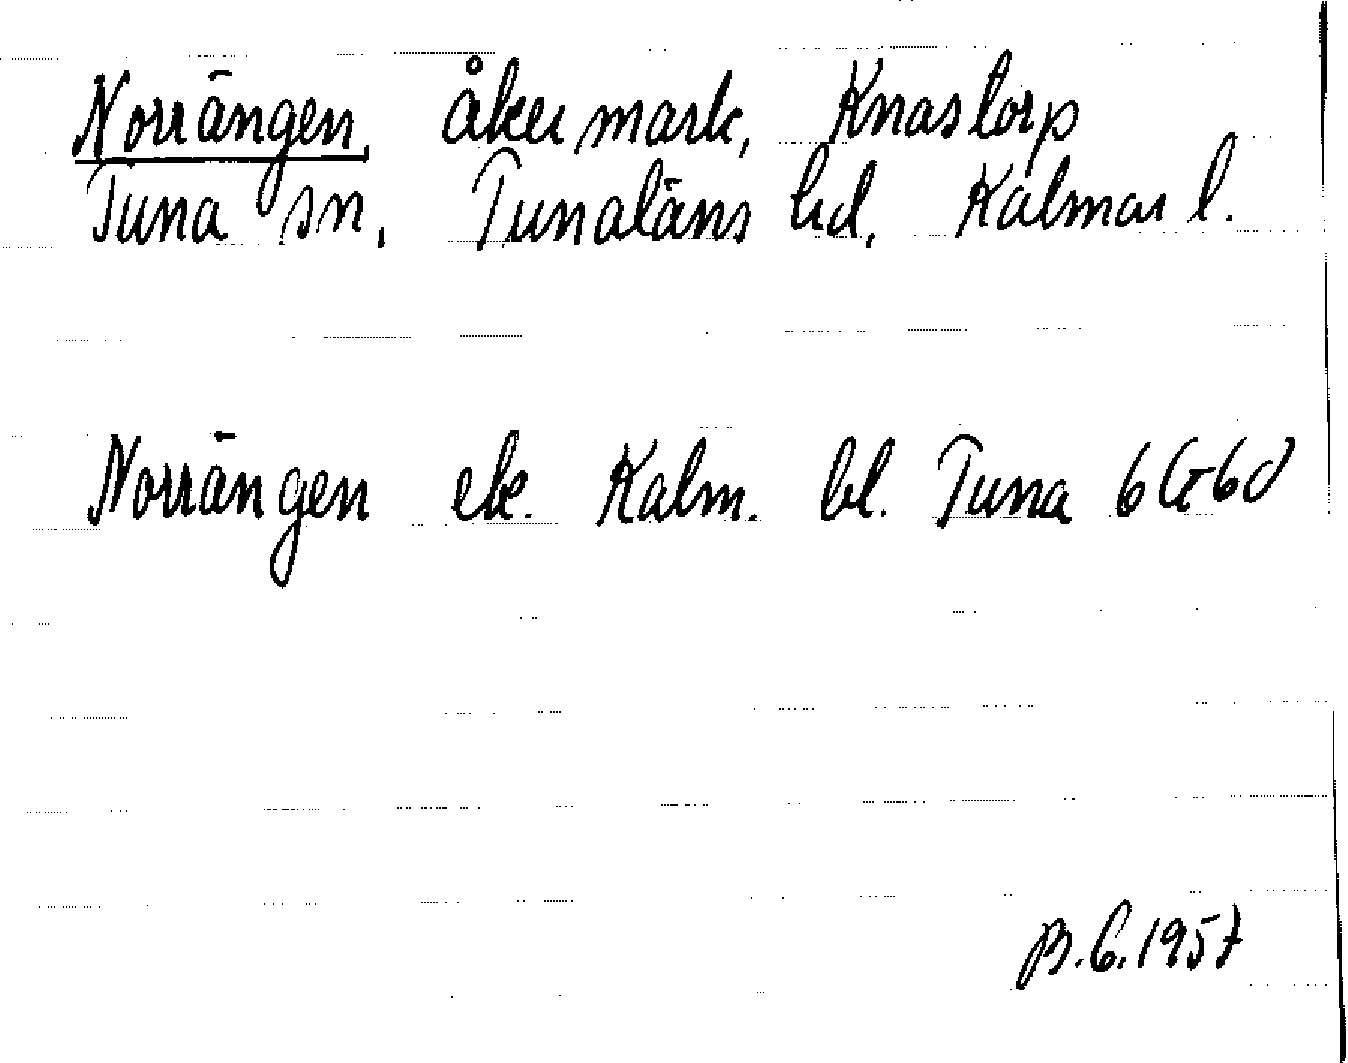 Norrängen, åkermark, Knastorp
Tuna sn, Tunaläns hd, Kalmar l.
Norrängen ek. Kalm. bl. Tuna 6G6d
B.G. 1957